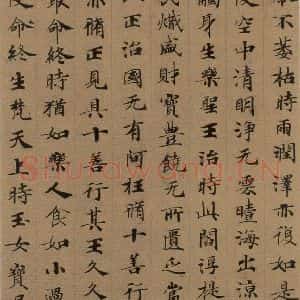 不萎枯時雨潤澤亦復如是
空中清明淨无雲曀海出涼
觸身生樂聖王治時此閻浮提
民熾盛財寶豐饒无所匱乏當
王正治國无有阿枉脩十善行
亦脩正見具十善行其王久久
取命終時猶如樂人食如小過
便命終生梵天上時玉女寶
Shufawang.CN